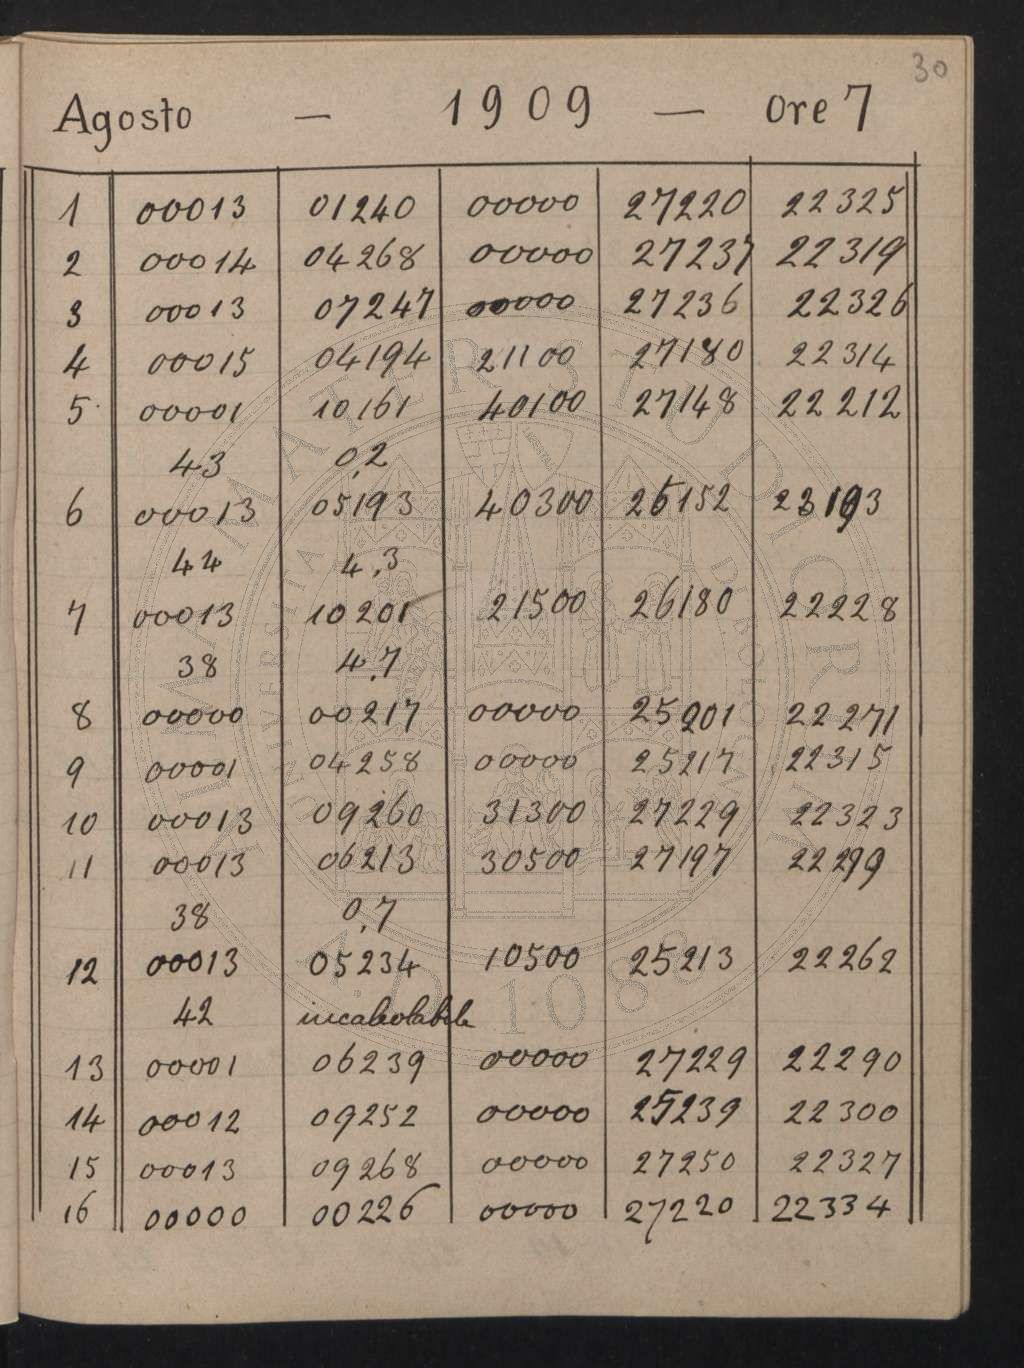 30
Agosto — 1909 — ore 7
1 00013 01240 00000 27220 22325
2 00014 04268 00000 27237 22319
3 00013 07247 00000 27236 22326
4 00015 04194 21100 27180 22314
5 00001 10161 40100 27148 22212
43 0,2
6 00013 05193 40300 26152 23193
44 4,3
7 00013 10201 21500 26180 22228
38 4,7
8 00000 00217 00000 25201 22271
9 00001 04258 00000 25217 22315
10 00013 09260 31300 27229 22323
11 00013 06213 30500 27197 22299
38 0,7
12 00013 05234 10500 25213 22262
42 incalcolabile
13 00001 06239 00000 27229 22290
14 00012 09252 00000 25239 22300
15 00013 09268 00000 27250 22327
16 00000 00226 00000 27220 22334